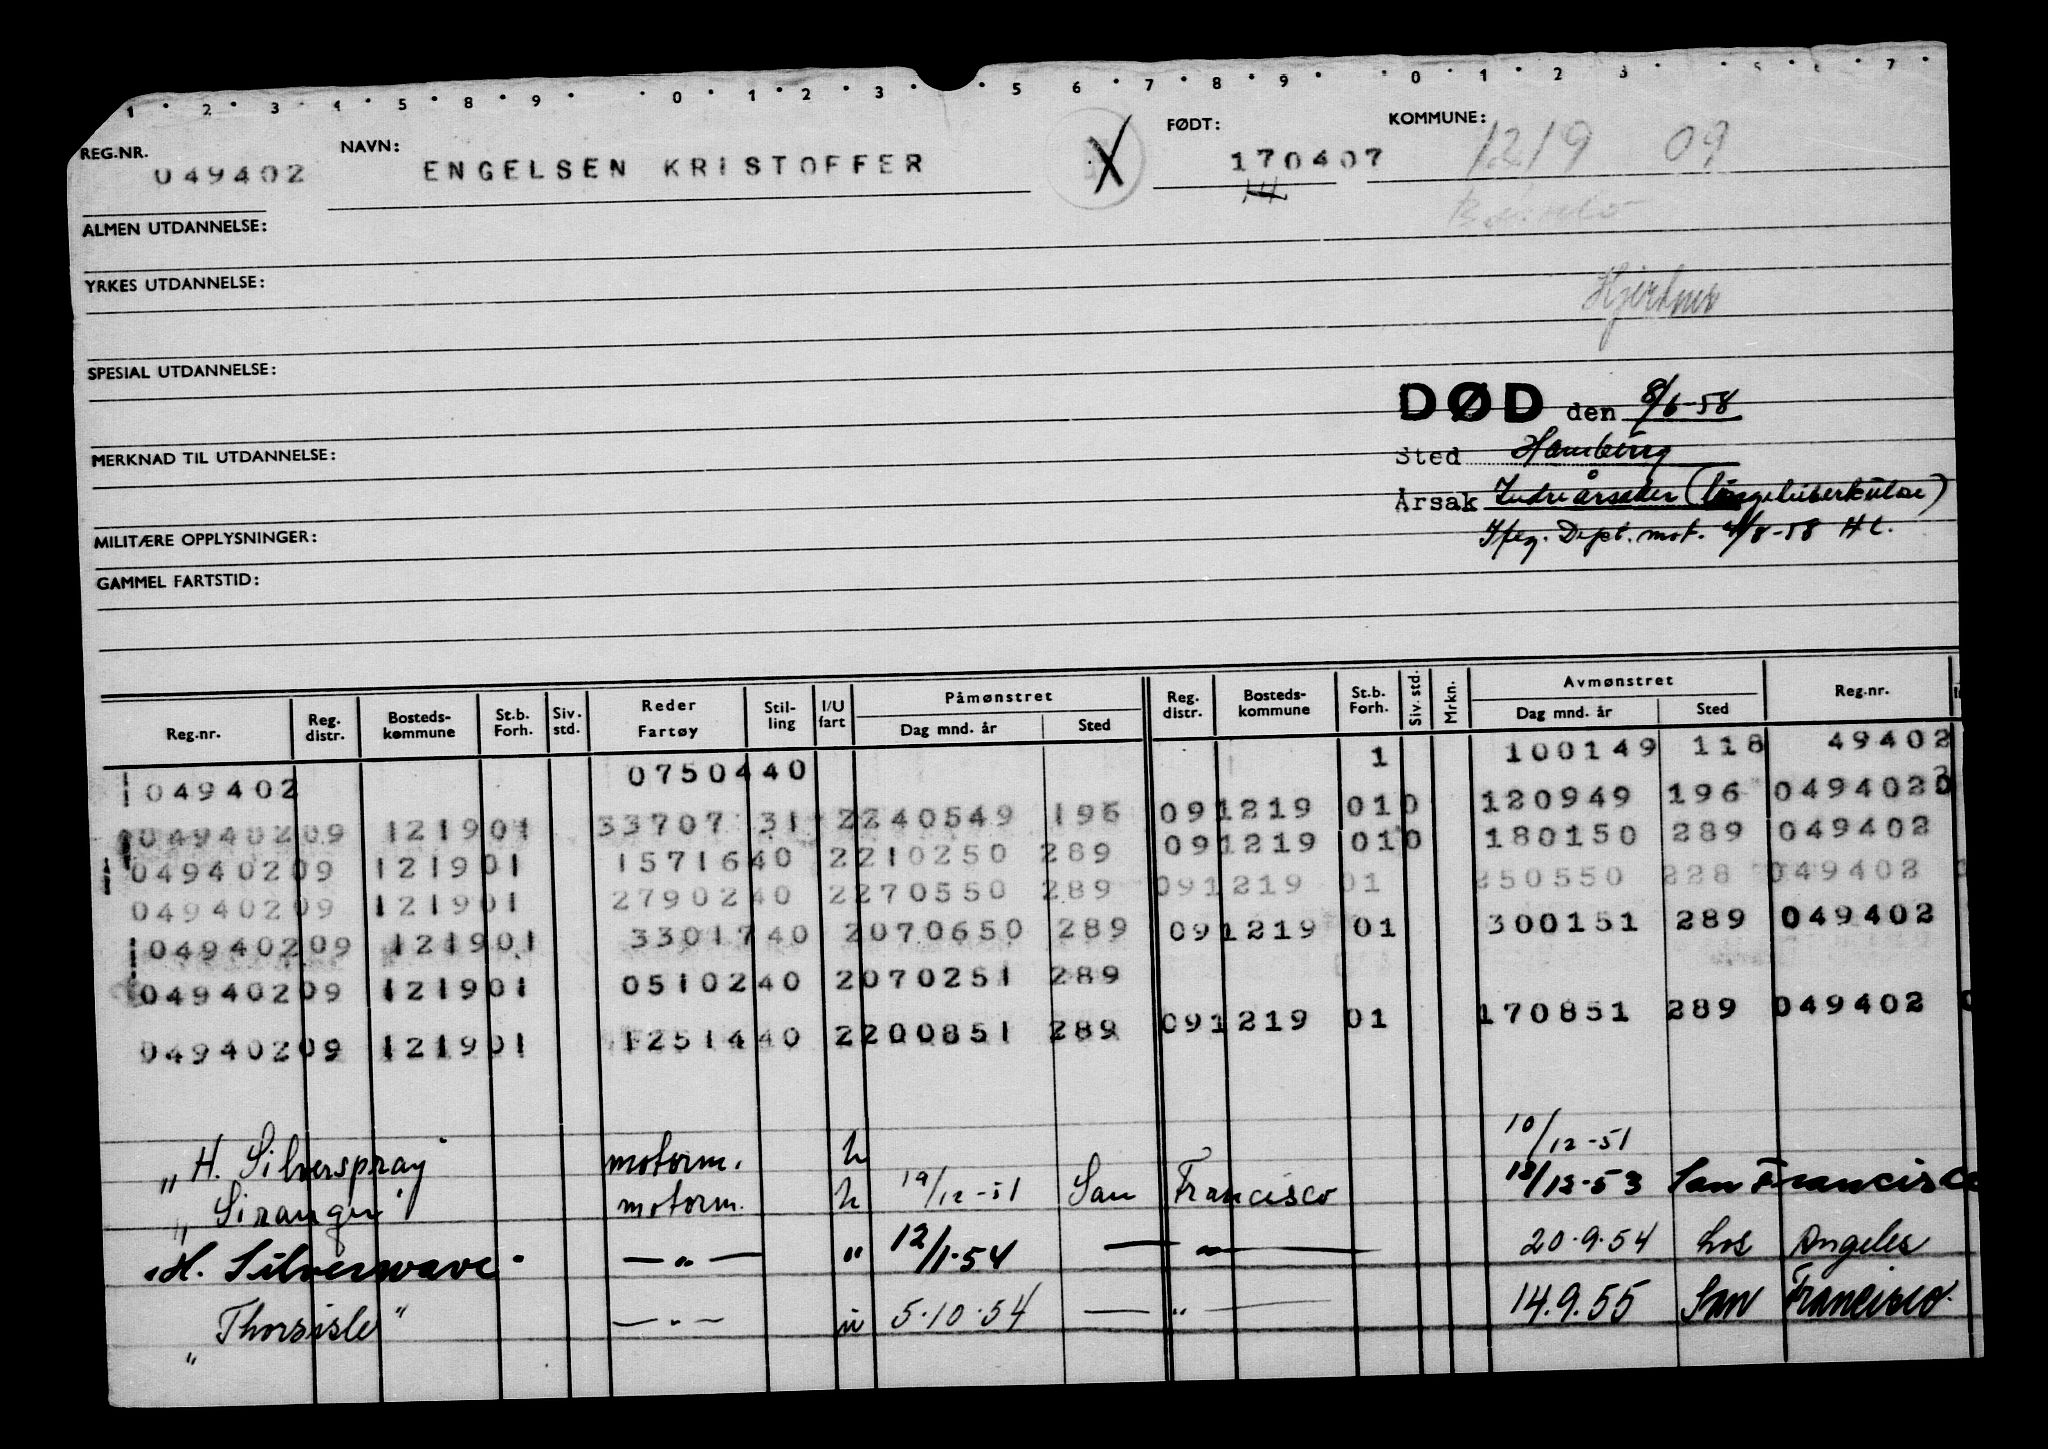 1 · 2 · 3 · 4 · 5 · 8 · 9 · · 0 · 1 · 2 · 3 · · 5 6 · 7 · 8 · 9 · · 0 · 1 · 2 · 3 · · 7 ·
REG.NR. 049402 NAVN: ENGELSEN KRISTOFFER X FØDT: 170407 KOMMUNE: 1219 09
ALMEN UTDANNELSE:
YRKES UTDANNELSE:
SPESIAL UTDANNELSE:
DØD den 8/6-58
MERKNAD TIL UTDANNELSE:
Sted Hamburg
Årsak Indre årsaker (lungetuberkulose)
MILITÆRE OPPLYSNINGER:
Dept. mot. /8-58 HL.
GAMMEL FARTSTID:
Reg.nr. Reg. distr. Bosteds-kommune St.b. Forh. Siv. std. Reder Fartøy Stil-ling I/U fart Påmønstret Dag mnd. år Sted Reg. distr. Bosteds-kommune St.b. Forh. Siv. std. Mrkn. Avmønstret Dag mnd. år Sted Reg.nr.
049402 0750440 1 100149 118 49402
04940209 121901 33707 31 2240549 196 091219 010 120949 196 0494020
04940209 121901 1571640 2210250 289 091219 010 180150 289 049402
04940209 121901 2790240 2270550 289 091219 01 250550 228 049402
04940209 121901 3301740 2070650 289 091219 01 300151 289 049402
04940209 121901 0510240 2070251 289
04940209 121901 1251440 2200851 289 091219 01 170851 289 049402
„ H. Silverspray" motorm. u 10/12-51
„ Siranger" motorm. u 19/12-51 San Francisco 12/12-53 San Francisco
„ H. Silverwave" — „ — „ 12/1-54 — „ — 20.9.54 Los Angeles
„ Thorsisle" — „ — u 5.10.54 — „ — 14.9.55 San Francisco.